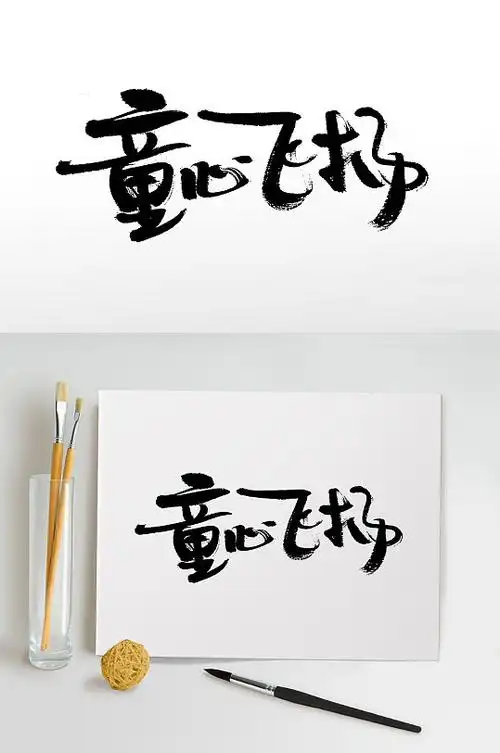 童心飞扬
童心飞扬